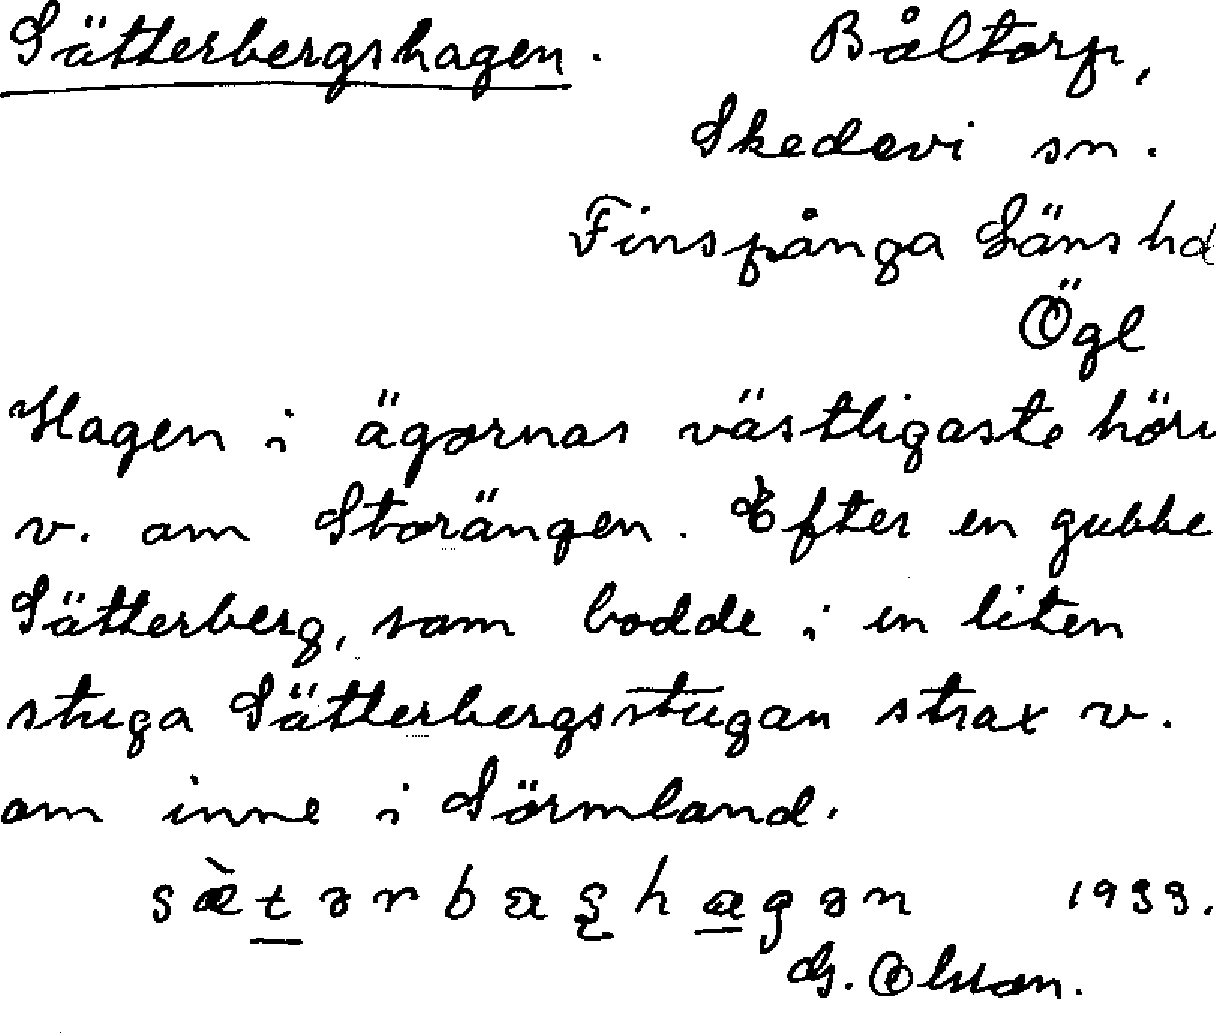 Sätterbergshagen. Båltorp,
Skedevi sn.
Finspånga Läns hd
Ögl
Hagen i ägornas västligaste hörn
v. om Storängen. Efter en gubbe
Sätterberg, som bodde i en liten
stuga Sätterbergsstugan strax v.
om inne i Sörmland.
1933.
G. Olsson.